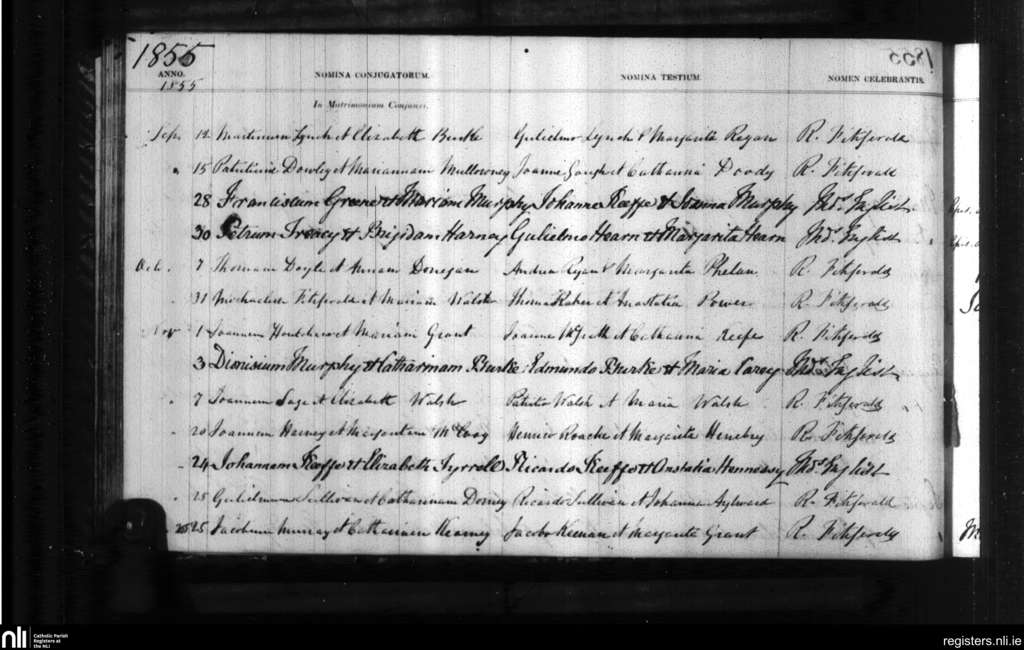 1855
1855
ANNO.
1855
NOMINA CONJUGATORUM.
NOMINA TESTIUM.
NOMEN CELEBRANTIS.
In Matrimonium Conjunxi.
Sep. 12 Martinum Lynch et Elizabeth Burke Gulielmo Lynch & Margarita Regan R. Fitzgerald
" 15 Patritium et Mariannam Mullowney Joanne et Catharina Doody R. Fitzgerald
28 Franciscum Greene et Mariam Murphy Johanne Keeffe & Joanna Murphy Thos. English
30 Petrum Treacy et Brigidam Harney Gulielmo Hearn et Margarita Hearn Thos. English
Oct. 7 Thomam Doyle et Annam Donegan Andrea Ryan & Margarita Phelan R. Fitzgerald
" 31 Michaelem Fitzgerald et Mariam Walsh Thoma et Anastatia Power R. Fitzgerald
Nov 1 Joannem et Mariam Grant Joanne McGrath et Catharina Keefe R. Fitzgerald
3 Dionisium Murphy et Catharinam Burke Edmundo Burke et Maria Carey Thos. English
" 7 Joannem et Elizabeth Walsh Patritio Walsh et Maria Walsh R. Fitzgerald
" 20 Joannem et Margaritam McCoog Henrico Roache et Margarita Henebry R. Fitzgerald
" 24 Johannem Keeffe et Elizabeth Tyrrell Ricardo Keeffe et Anstatia Hennessy Thos. English
" 25 Gulielmum Sullivan et Catharinam Dorney Ricardo Sullivan et Johanna Aylward R. Fitzgerald
" 25 Jacobum Murray et Catharinam Kearney Jacobo Keenan et Margarita Grant R. Fitzgerald
nli
Catholic Parish
Registers at
the NLI
registers.nli.ie